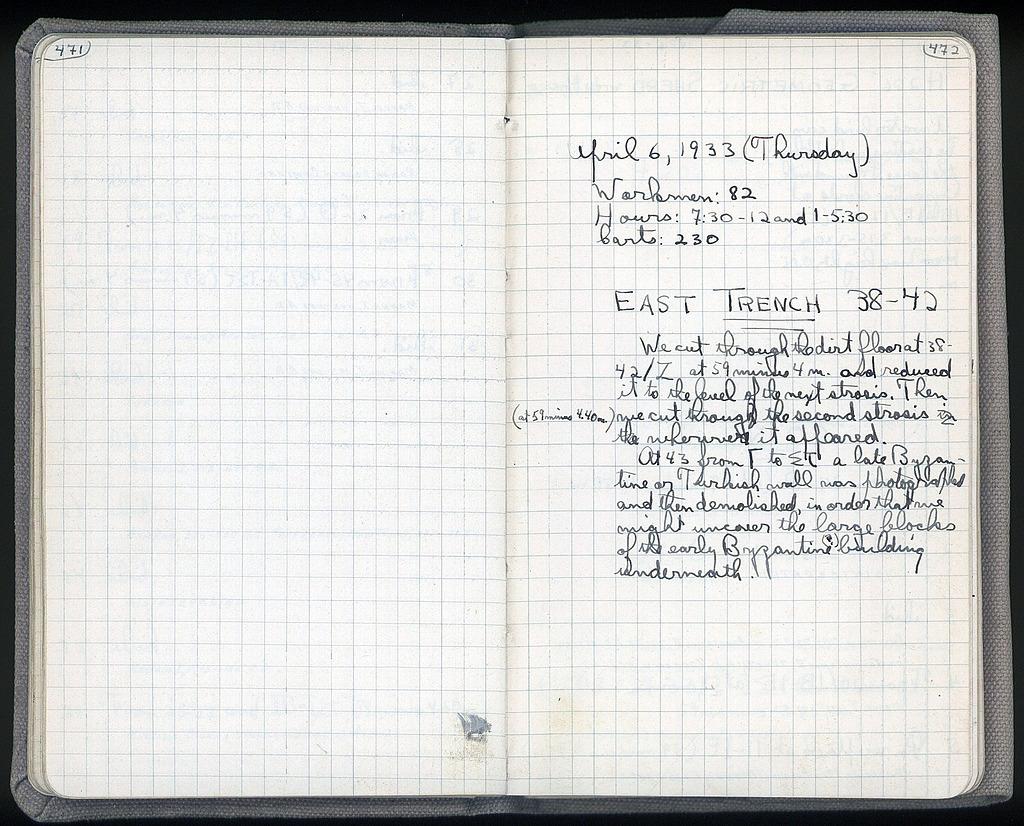 471
472
April 6, 1933 (Thursday)
Workmen: 82
Hours: 7:30-12 and 1-5:30
Carts: 230
EAST TRENCH 38-42
We cut through the dirt floor at 38-
42/Z at 59 minus 4 m. and reduced
it to the level of the next strosis. Then
(at 59 minus 4.40m.) we cut through the second strosis
the wherever it appeared.
At 43 from Γ to ΣΤ a late Byzan-
tine or Turkish wall was photographed
and then demolished, in order that we
might uncover the large blocks
of the early Byzantine (?) building
underneath.